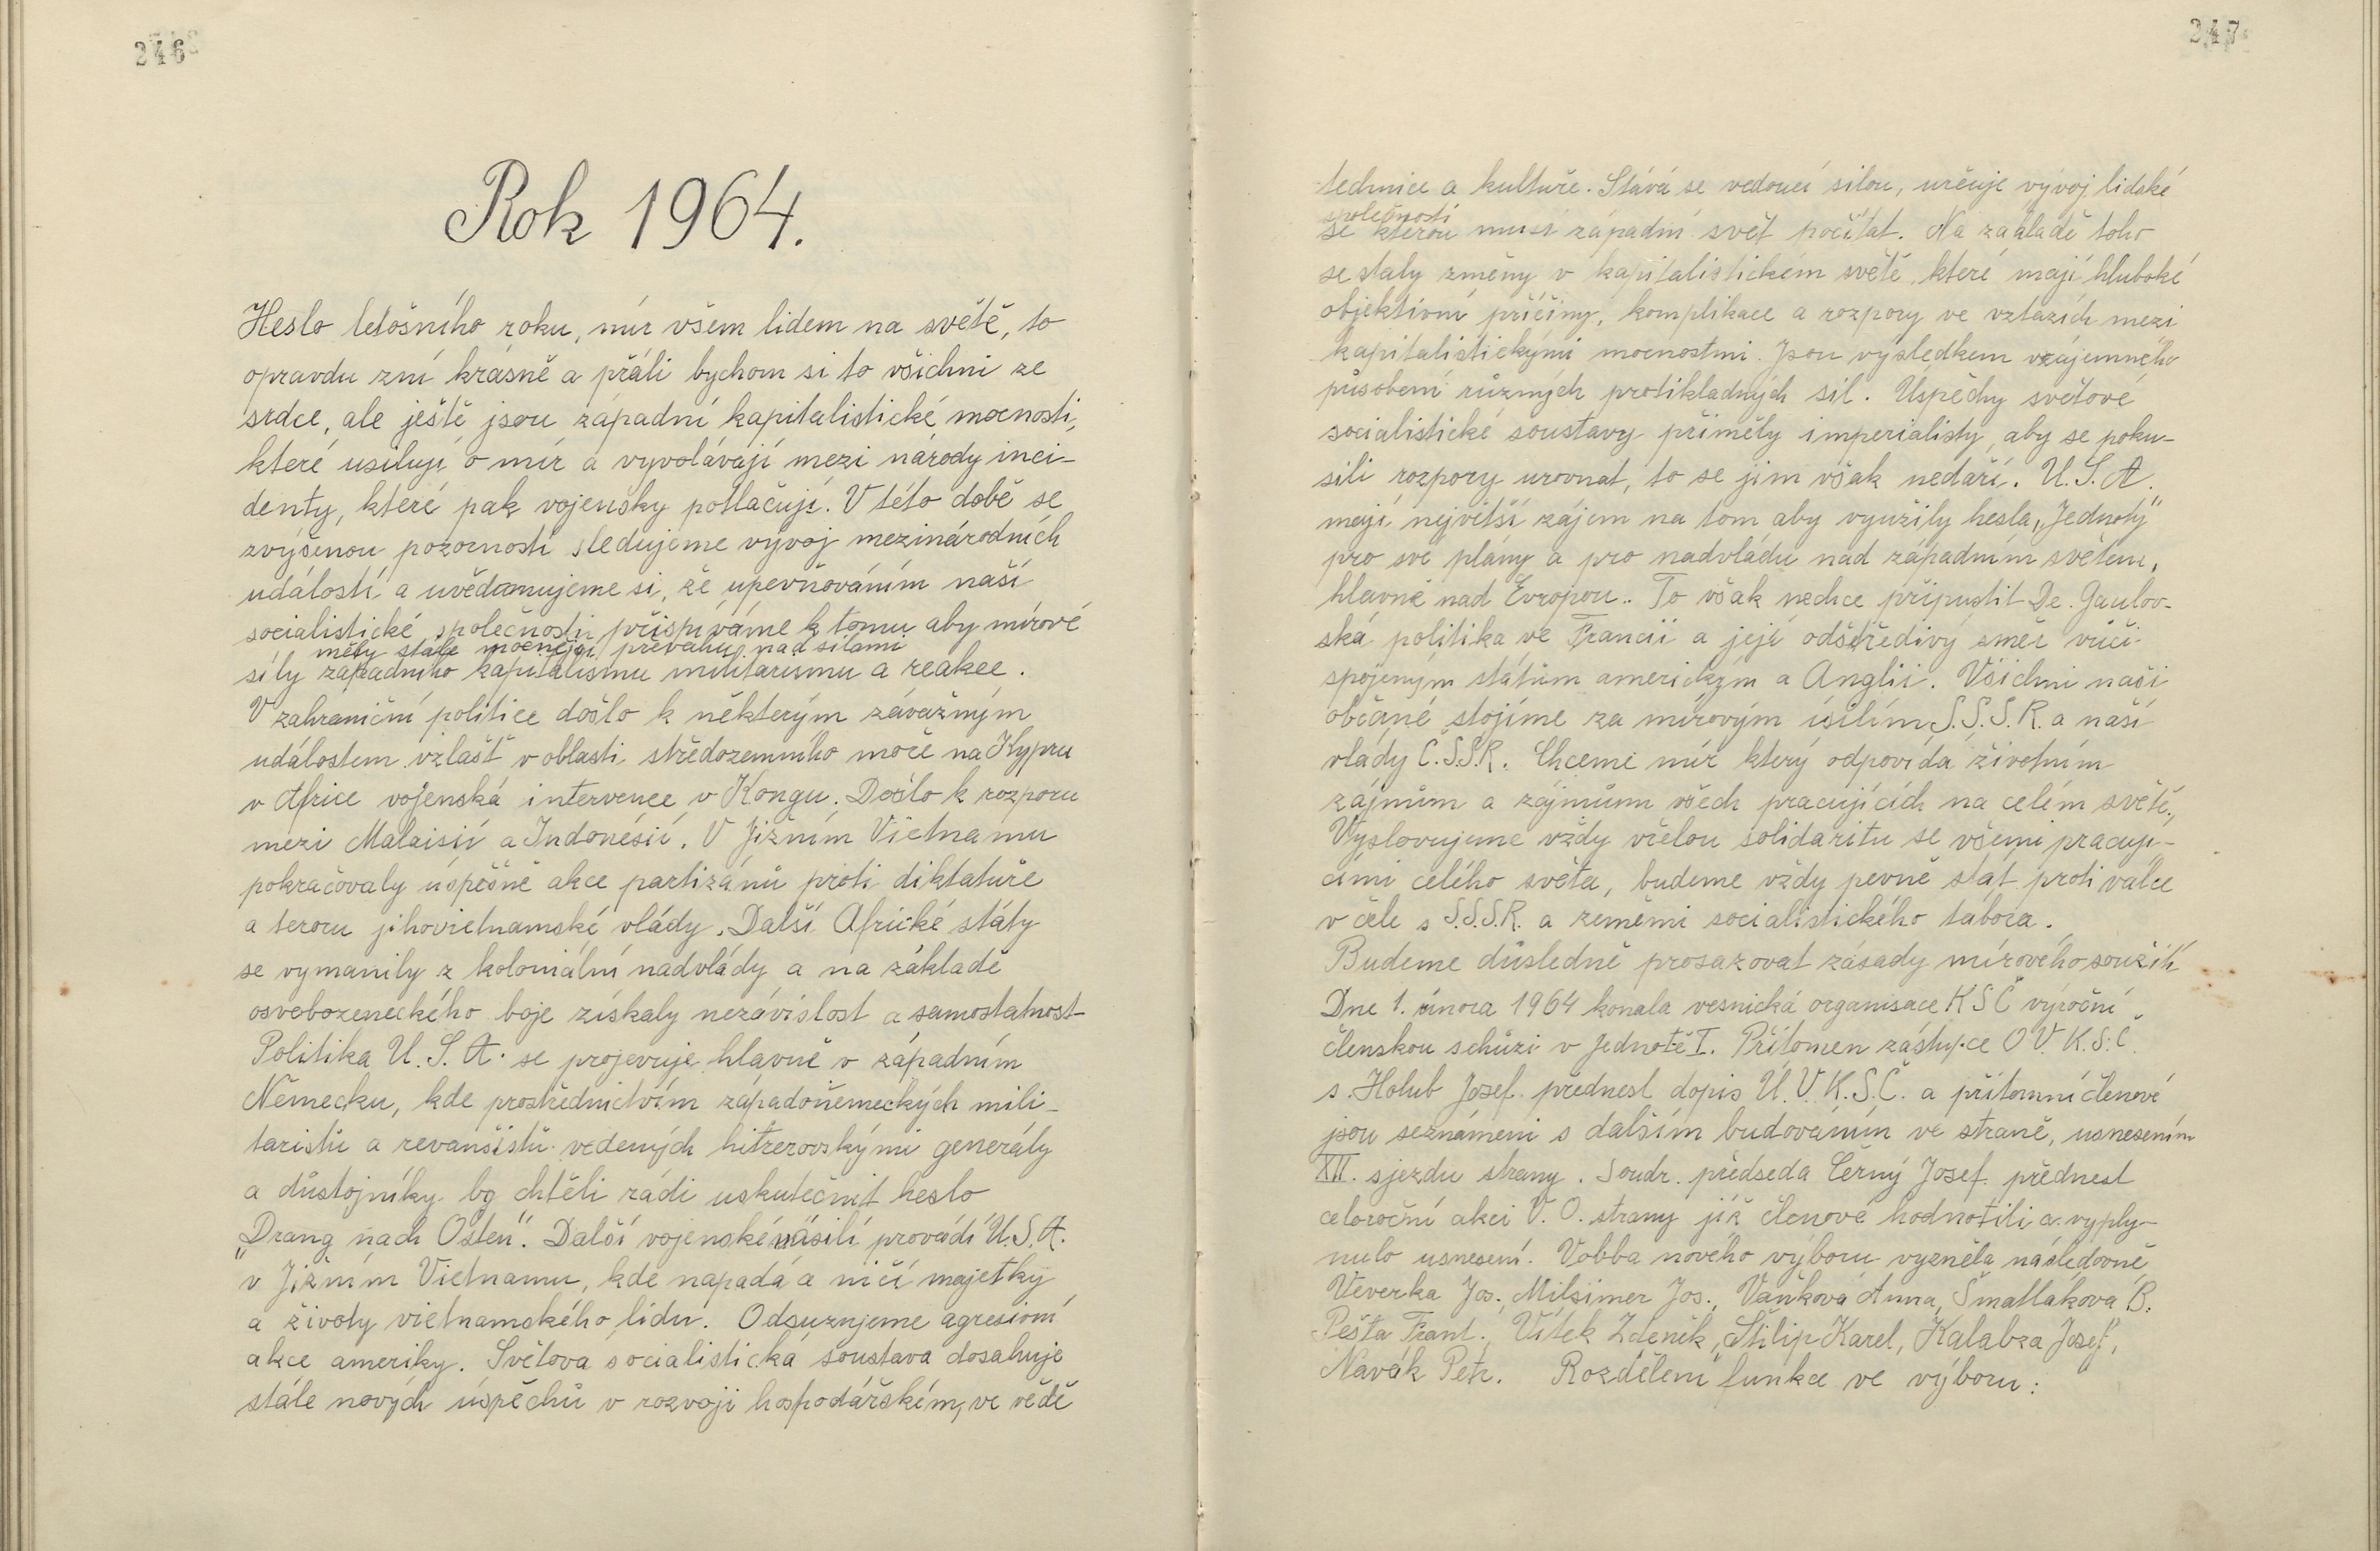 246
Rok 1964.
Heslo letošního roku, mír všem lidem na světě, to
opravdu zní krásně a přáli bychom si to všichni ze
srdce, ale ještě jsou západní kapitalistické mocnosti,
které usilují o mír a vyvolávají mezi národy inci-
denty, které pak vojensky potlačují. V této době se
zvýšenou pozorností sledujeme vývoj mezinárodních
událostí a uvědomujeme si, že upevňováním naší
socialistické společnosti přispíváme k tomu aby mírové
měly stále mocnější převahu nad silami
síly západního kapitalismu militarismu a reakce.
V zahraniční politice došlo k některým závažným
událostem vzlášť v oblasti středozemního moře na Kypru
v Africe vojenská intervence v Kongu. Došlo k rozporu
mezi Malaisií a Indonésií. V Jižním Vietnamu
pokračovaly úspěšně akce partizánů proti diktatuře
a teroru jihovietnamské vlády. Další Africké státy
se vymanily z koloniální nadvlády a na základě
osvobozeneckého boje získaly nezávislost a samostatnost
Politika U.S.A. se projevuje hlavně v západním
Německu, kde prostřednictvím západoněmeckých mili-
taristů a revanšistů vedených hitrerovskými generály
a důstojníky by chtěli rádi uskutečnit heslo
„Drang nach Osten". Další vojenské násilí provádí U.S.A.
v Jižním Vietnamu, kde napadá a ničí majetky
a životy vietnamského lidu. Odsuzujeme agresivní
akce ameriky. Světova socialistická soustava dosahuje
stále nových úspěchů v rozvoji hospodářském, ve vědě
247
technice a kultuře. Stává se vedoucí silou, určuje vývoj lidské
společnosti
se kterou musí západní svět počítat. Na základě toho
se staly změny v kapitalistickém světě, které mají hluboké
objektivní příčiny, komplikace a rozpory ve vztazích mezi
kapitalistickými mocnostmi. Jsou výsledkem vzájemného
působení různých protikladných sil. Úspěchy světové
socialistické soustavy přiměly imperialisty, aby se poku-
sili rozpory urovnat, to se jim však nedaří. U.S.A.
mají největší zájem na tom aby využily hesla „Jednoty"
pro své plány a pro nadvládu nad západním světem,
hlavně nad Evropou. To však nechce připustit De. Gaulov-
ská politika ve Francii a její odstředivý směr vůči
spojeným státům americkým a Anglii. Všichni naši
občané stojíme za mírovým úsilím S.S.S.R. a naší
vlády Č.S.S.R. Chceme mír který odpovídá životním
zájmům a zájmům všech pracujících na celém světě.
Vyslovujeme vždy vřelou solidaritu se všemi pracují-
cími celého světa, budeme vždy pevně stát proti válce
v čele s S.S.S.R. a zeměmi socialistického tábora.
Budeme důsledně prosazovat zásady mírového soužití
Dne 1. února 1964 konala vesnická organisace KSČ výroční
členskou schůzi v Jednotě I. Přítomen zástupce O.V. K.S.Č.
s. Holub Josef. přednesl dopis Ú.V.K.S.Č. a přítomní členové
jsou seznámeni s dalším budováním ve straně, usnesením
XII. sjezdu strany. Soudr. předseda Černý Josef. přednesl
celoroční akci V.O. strany jíž členové hodnotili a vyply-
nulo usnesení. Vobba nového výboru vyzněla následovně
Veverka Jos., Milsimer Jos., Vaňková Anna, Šmatláková B.
Pešta Frant., Vítek Zdeněk, Štilip Karel, Kalabza Josef,
Navák Petr. Rozdělení funkce ve výboru: